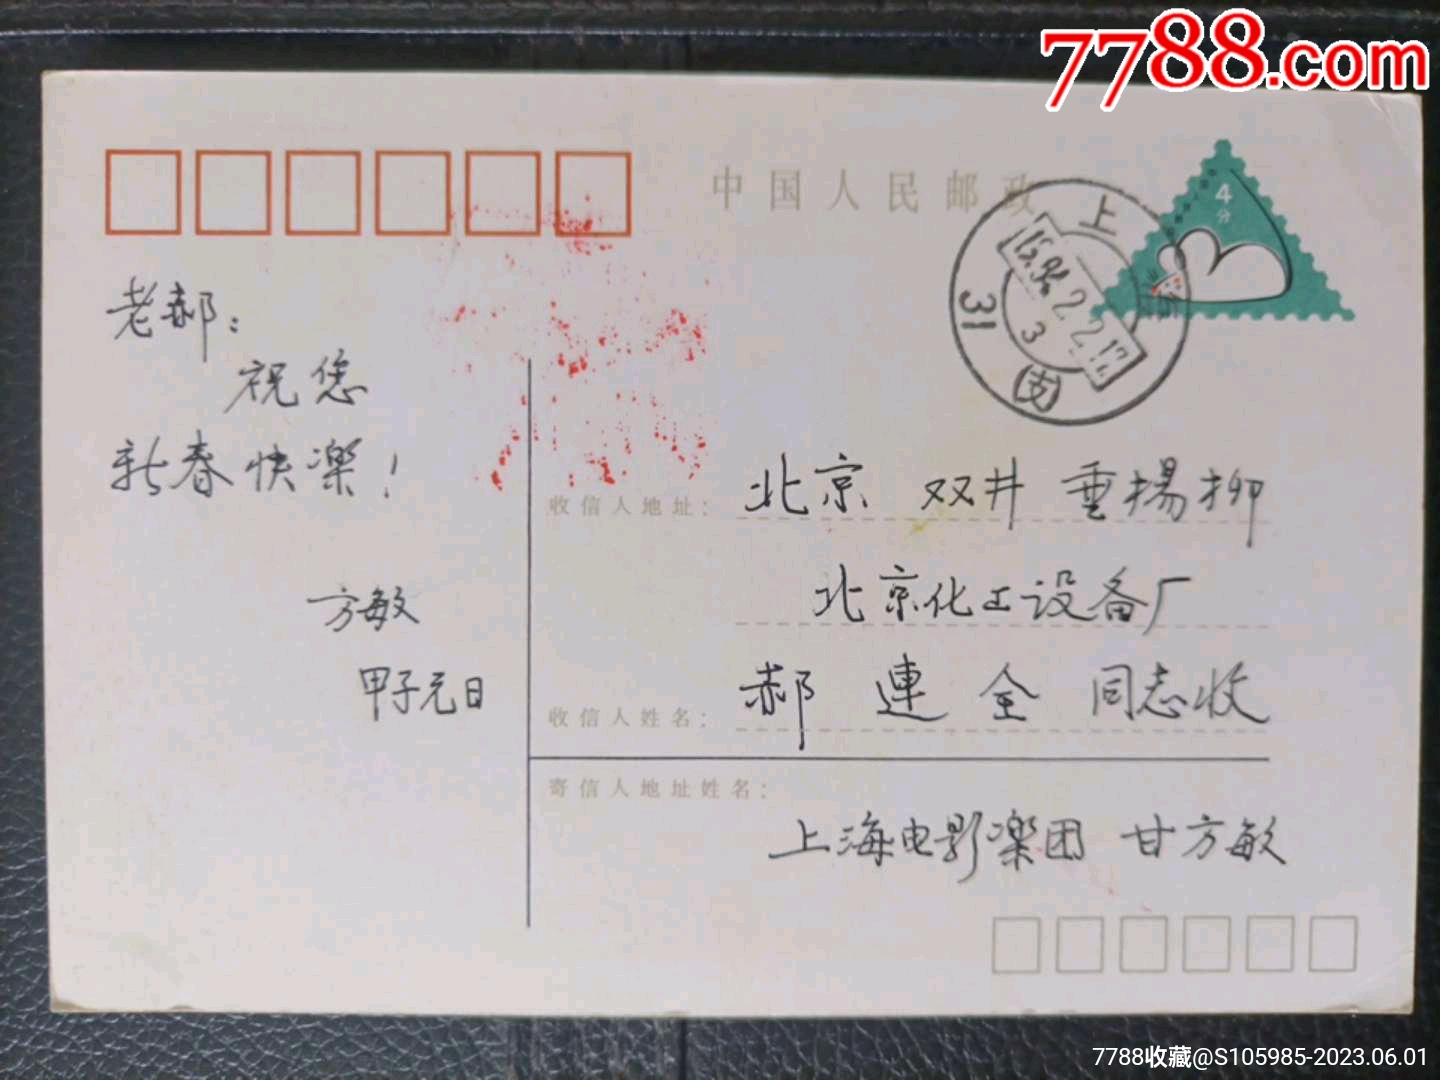 7788.com
中国人民邮政
4
分
上
海
15.84.2.2.12
3
31
(支)
老郝：
祝您
新春快樂！
方敏
甲子元日
收信人地址：
北京 双井 垂揚柳
北京化工设备厂
收信人姓名：
郝 連 全 同志收
寄信人地址姓名：
上海电影樂团 甘方敏
7788收藏@S105985-2023.06.01